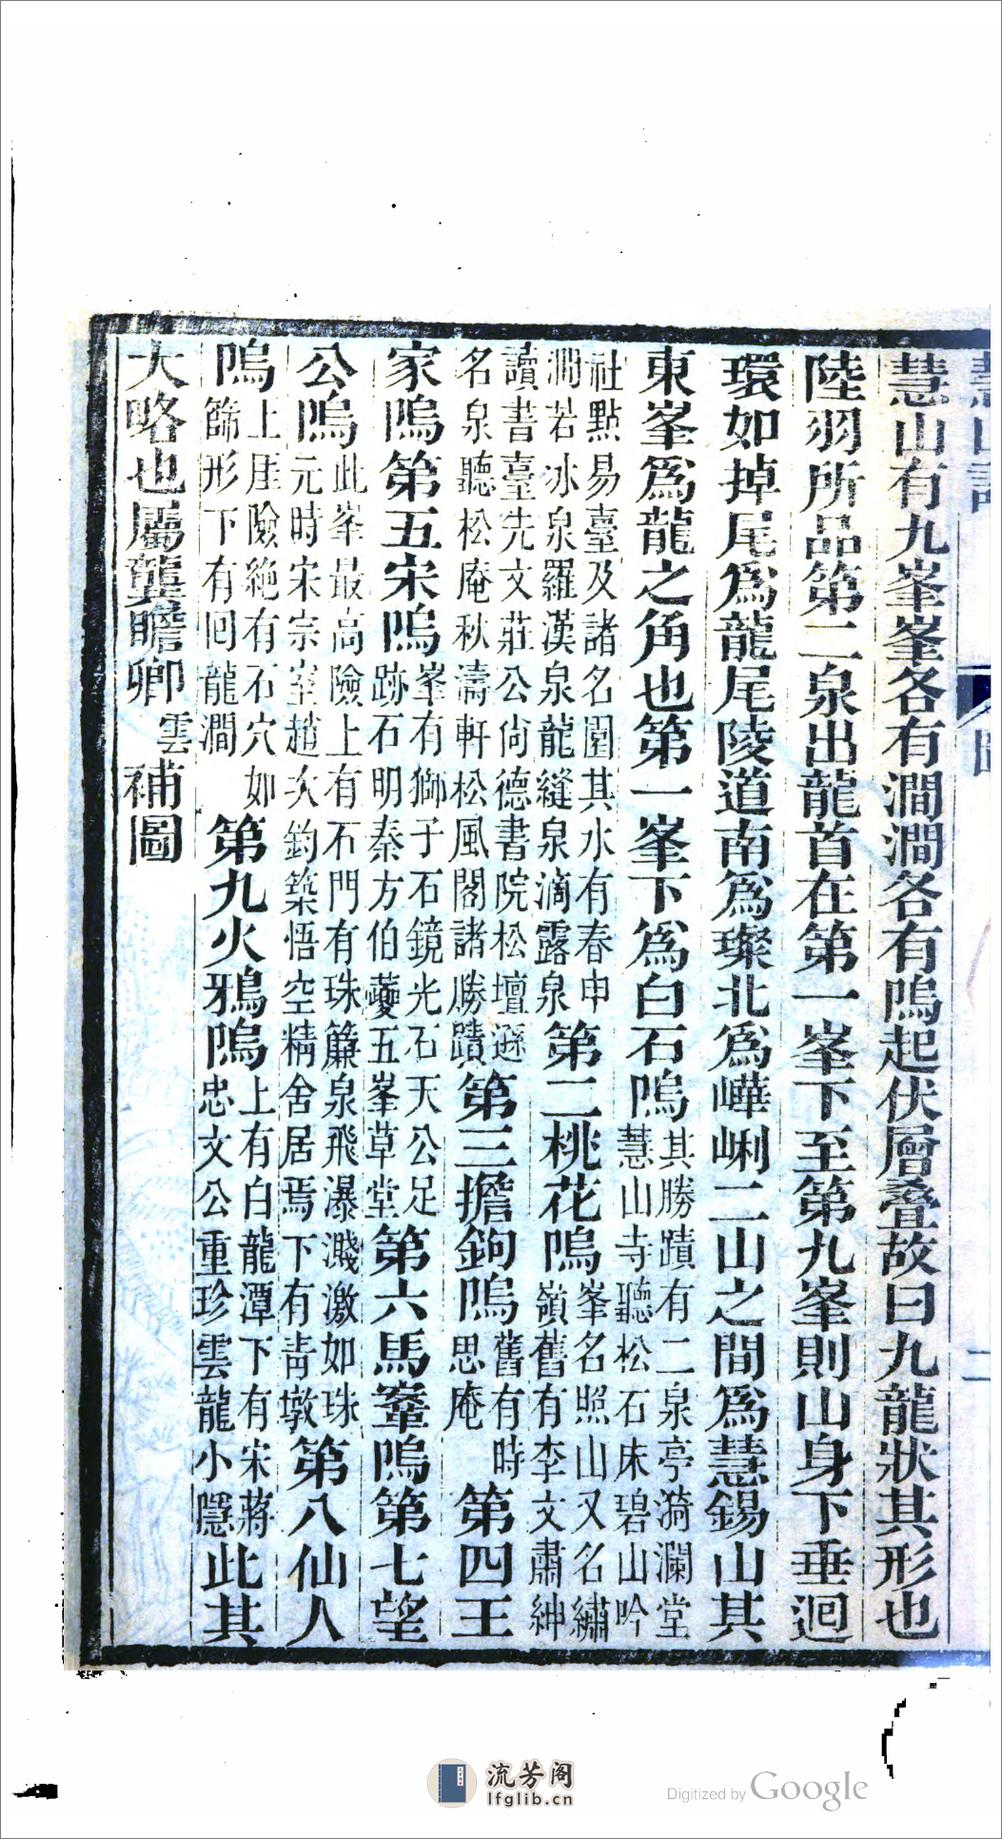 慧山有九峯峯各有澗澗各有塢起伏層叠故曰九龍狀其形也
陸羽所品第二泉出龍首在第一峯下至第九峯則山身下垂迴
環如掉尾爲龍尾陵道南爲璨北爲嶂峢二山之間爲慧錫山其
東峯爲龍之角也第一峯下爲白石塢
其勝蹟有二泉亭漪瀾堂
慧山寺聽松石床碧山吟
社點易臺及諸名園其水有春申
澗若冰泉羅漢泉龍縫泉滴露泉
第二桃花塢
峯名照山又名繡
嶺舊有李文肅紳
讀書臺先文莊公尙德書院松壇遜
名泉聽松庵秋濤軒松風閣諸勝蹟
第三擔鉤塢
舊有時
思庵
第四王
家塢第五宋塢
峯有獅子石鏡光石天公足
跡石明秦方伯夔五峯草堂
第六馬鞌塢第七望
公塢
此峯最高險上有石門有珠簾泉飛瀑濺激如珠
元時宋宗室趙次鈞築悟空精舍居焉下有靑墩
第八仙人
塢
上厓險絶有石穴如
篩形下有囘龍澗
第九火鴉塢
上有白龍潭下有宋蔣
忠文公重珍雲龍小隱
此其
大略也屬龔瞻卿
雲
補圖
圖
二
流芳阁
lfglib.cn
Digitized by Google